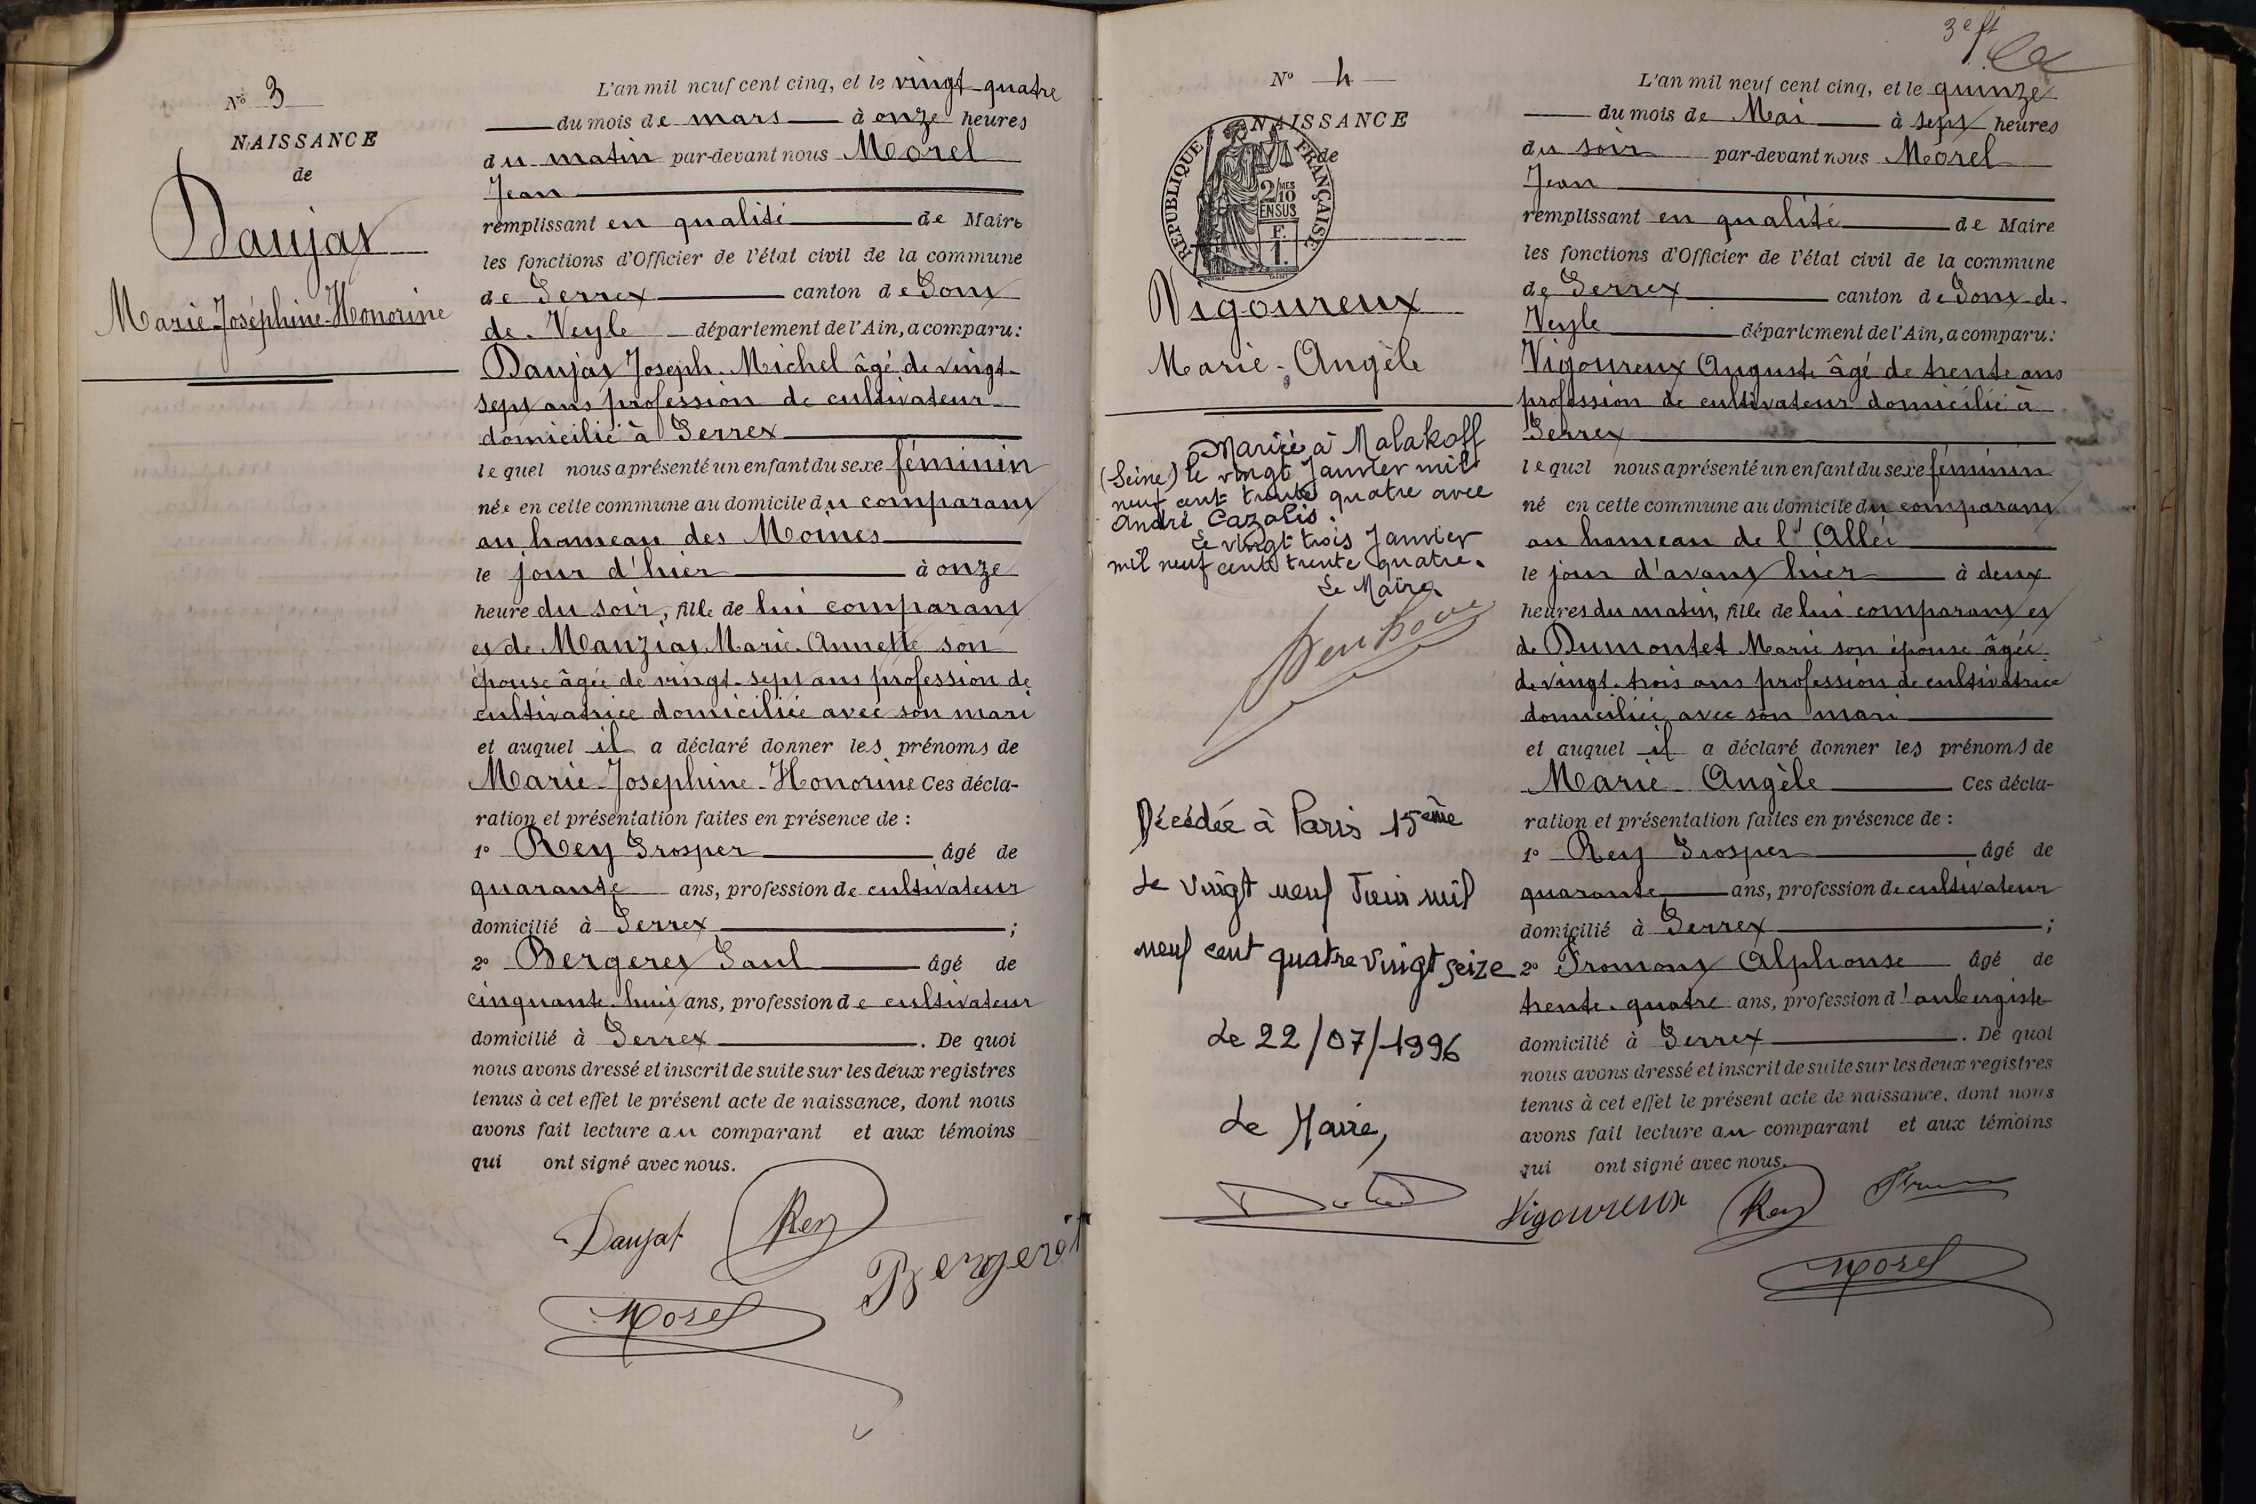 N° 3
NAISSANCE
de
Daujat
Marie-Joséphine-Honorine
L'an mil neuf cent cinq, et le vingt-quatre
du mois de mars à onze heures
du matin par-devant nous Morel
Jean
remplissant en qualité de Maire
les fonctions d'Officier de l'état civil de la commune
de Perrex canton de Pont
de Veyle département de l'Ain, a comparu:
Daujat Joseph Michel âgé de vingt-
sept ans profession de cultivateur
domicilié à Perrex
lequel nous a présenté un enfant du sexe féminin
née en cette commune au domicile du comparant
au hameau des Moines
le jour d'hier à onze
heure du soir, fille de lui comparant
et de Manziat Marie Annette son
épouse âgée de vingt-sept ans profession de
cultivatrice domiciliée avec son mari
et auquel il a déclaré donner les prénoms de
Marie-Josephine-Honorine Ces décla-
ration et présentation faites en présence de :
1° Rey Prosper âgé de
quarante ans, profession de cultivateur
domicilié à Perrex ;
2° Bergeret Paul âgé de
cinquante-huit ans, profession de cultivateur
domicilié à Perrex . De quoi
nous avons dressé et inscrit de suite sur les deux registres
tenus à cet effet le présent acte de naissance, dont nous
avons fait lecture au comparant et aux témoins
qui ont signé avec nous.
Daujat Rey
Bergeret
Morel
3e ft
N° 4
NAISSANCE
de
REPUBLIQUE FRANÇAISE
2/MES
10
EN SUS
F.
1.
Vigoureux
Marie-Angèle
Mariée à Malakoff
(Seine) le vingt Janvier mil
neuf cent trente quatre avec
André Cazalis.
Le vingt trois Janvier
mil neuf cent trente quatre.
Le Maire
Décédée à Paris 15ème
Le vingt neuf Juin mil
neuf cent quatre vingt seize
Le 22/07/1996
Le Maire,
L'an mil neuf cent cinq, et le quinze
du mois de Mai à sept heures
du soir par-devant nous Morel
Jean
remplissant en qualité de Maire
les fonctions d'Officier de l'état civil de la commune
de Perrex canton de Pont-de-
Veyle département de l'Ain, a comparu:
Vigoureux Auguste âgé de trente ans
profession de cultivateur domicilié à
Perrex
lequel nous a présenté un enfant du sexe féminin
né en cette commune au domicile du comparant
au hameau de l'Allée
le jour d'avant hier à deux
heures du matin, fille de lui comparant et
de Dumontet Marie son épouse âgée
de vingt-trois ans profession de cultivatrice
domiciliée avec son mari
et auquel il a déclaré donner les prénoms de
Marie-Angèle Ces décla-
ration et présentation faites en présence de :
1° Rey Prosper âgé de
quarante ans, profession de cultivateur
domicilié à Perrex ;
2° Fromont Alphonse âgé de
trente-quatre ans, profession d'aubergiste
domicilié à Perrex . De quoi
nous avons dressé et inscrit de suite sur les deux registres
tenus à cet effet le présent acte de naissance, dont nous
avons fait lecture au comparant et aux témoins
qui ont signé avec nous.
Vigoureux Rey
Morel